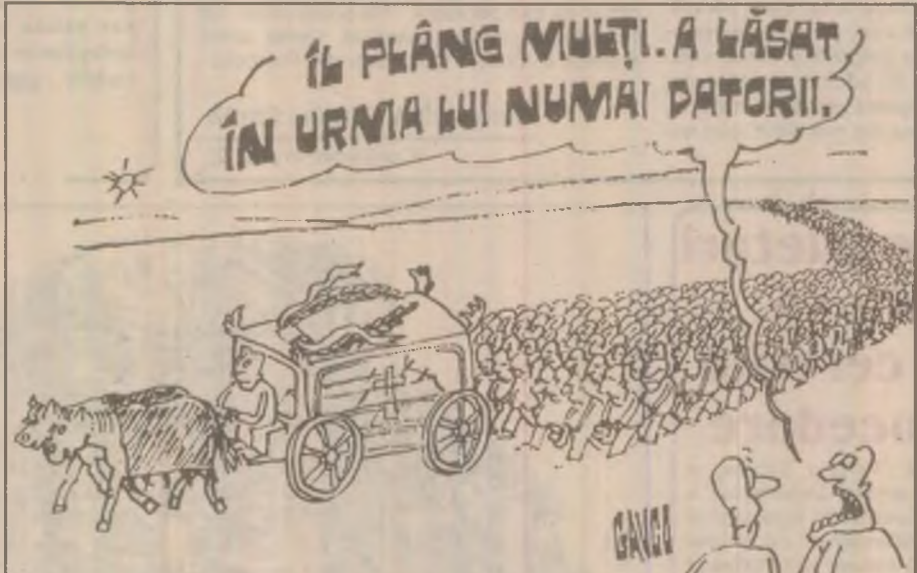 ÎL PLÂNG MULȚI. A LĂSAT
ÎN URMA LUI NUMAI DATORII.